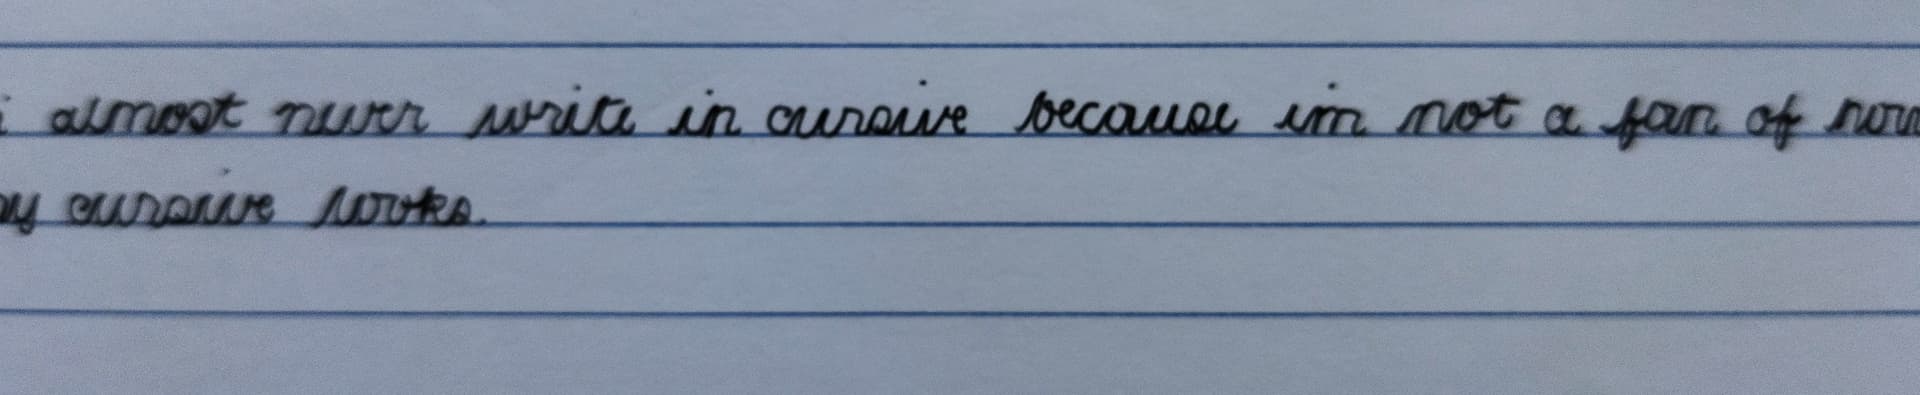 i almost never write in cursive because im not a fan of how
my cursive looks.